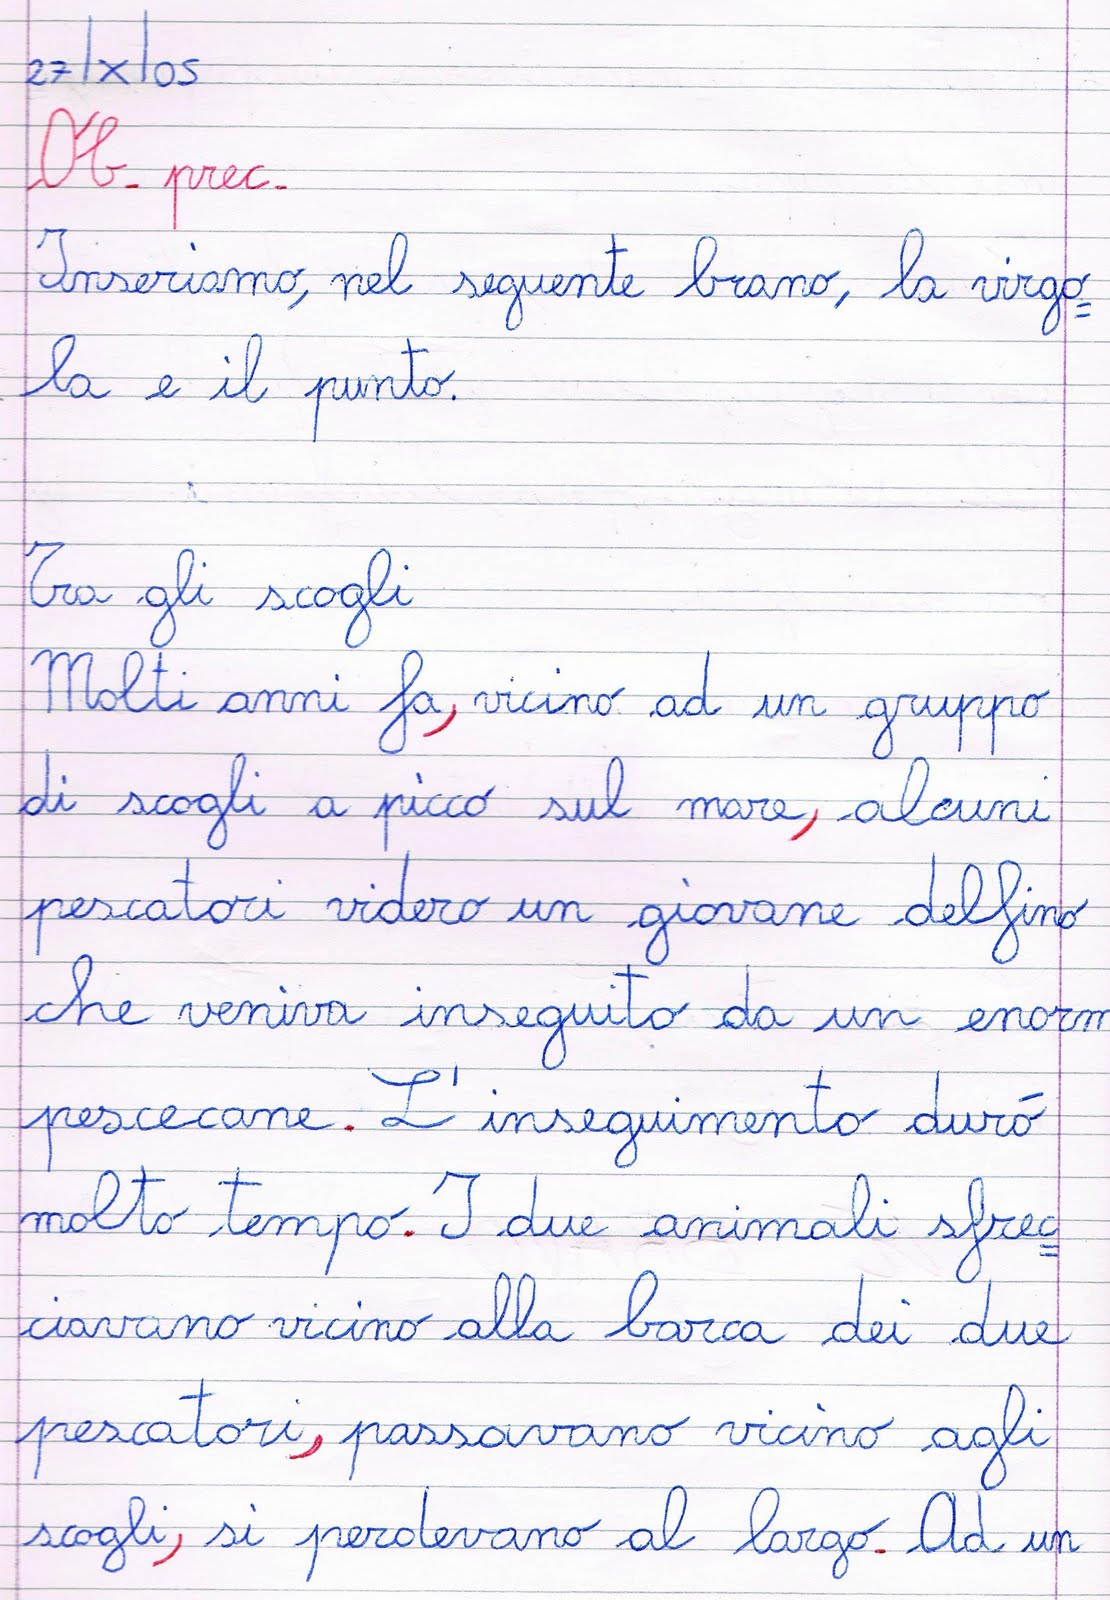 27/X/05
Ob. prec.
Inseriamo, nel seguente brano, la virgo=
la e il punto.
Tra gli scogli
Molti anni fa, vicino ad un gruppo
di scogli a picco sul mare, alcuni
pescatori videro un giovane delfino
che veniva inseguito da un enorm
pescecane. L'inseguimento durò
molto tempo. I due animali sfrec=
ciavano vicino alla barca dei due
pescatori, passavano vicino agli
scogli, si perdevano al largo. Ad un